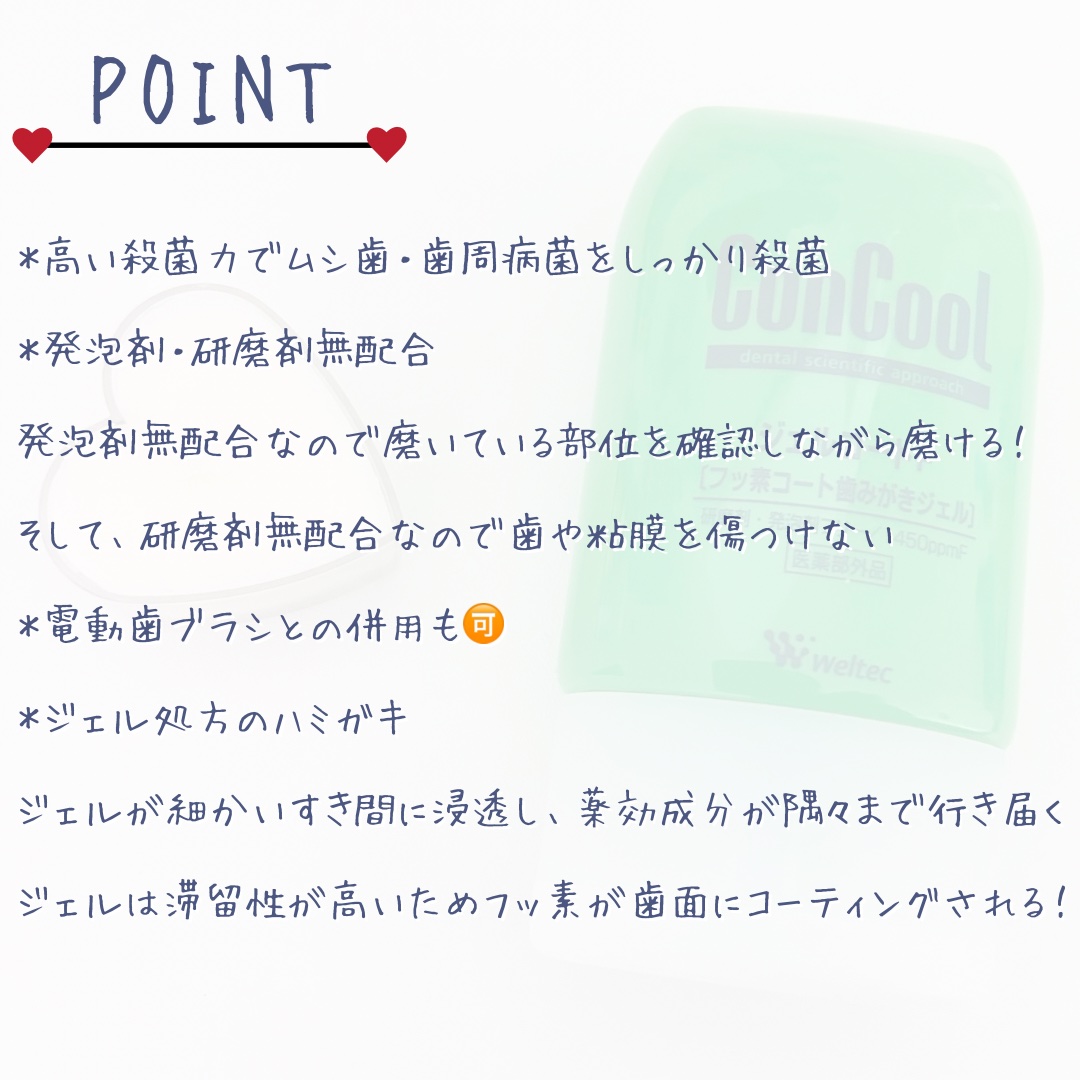 POINT
*高い殺菌力でムシ歯・歯周病菌をしっかり殺菌
ConCool
dental scientific approach
*発泡剤・研磨剤無配合
発泡剤無配合なので磨いている部位を確認しながら磨ける!
[フッ素コート歯みがきジェル]
そして、研磨剤無配合なので歯や粘膜を傷つけない
450ppmF
医薬部外品
*電動歯ブラシとの併用も🉑
weltec
*ジェル処方のハミガキ
ジェルが細かいすき間に浸透し、薬効成分が隅々まで行き届く
ジェルは滞留性が高いためフッ素が歯面にコーティングされる!